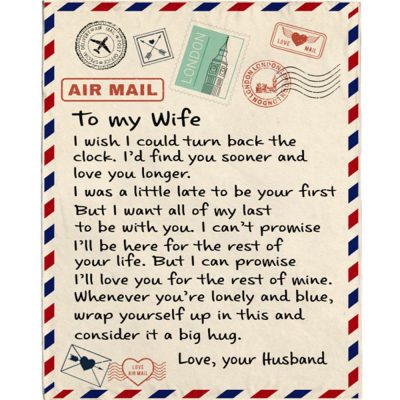 SPECIAL DELIVERY
AIR MAIL
POST OFFICE
LONDON
LOVE MAIL
LONDON LONDON LONDON
LONDON LONDON
AIR MAIL
To my Wife
I wish I could turn back the
clock. I'd find you sooner and
love you longer.
I was a little late to be your first
But I want all of my last
to be with you. I can't promise
I'll be here for the rest of
your life. But I can promise
I'll love you for the rest of mine.
Whenever you're lonely and blue,
wrap yourself up in this and
consider it a big hug.
Love, your Husband
LOVE
AIR MAIL